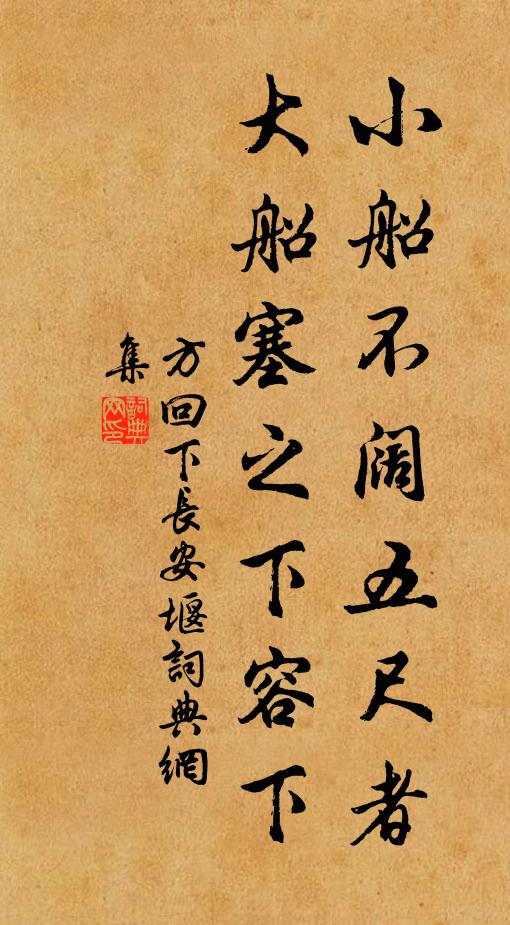 小船不阔五尺者
大船塞之下容下
方回下長安堰詞典網
集
詞典
网印